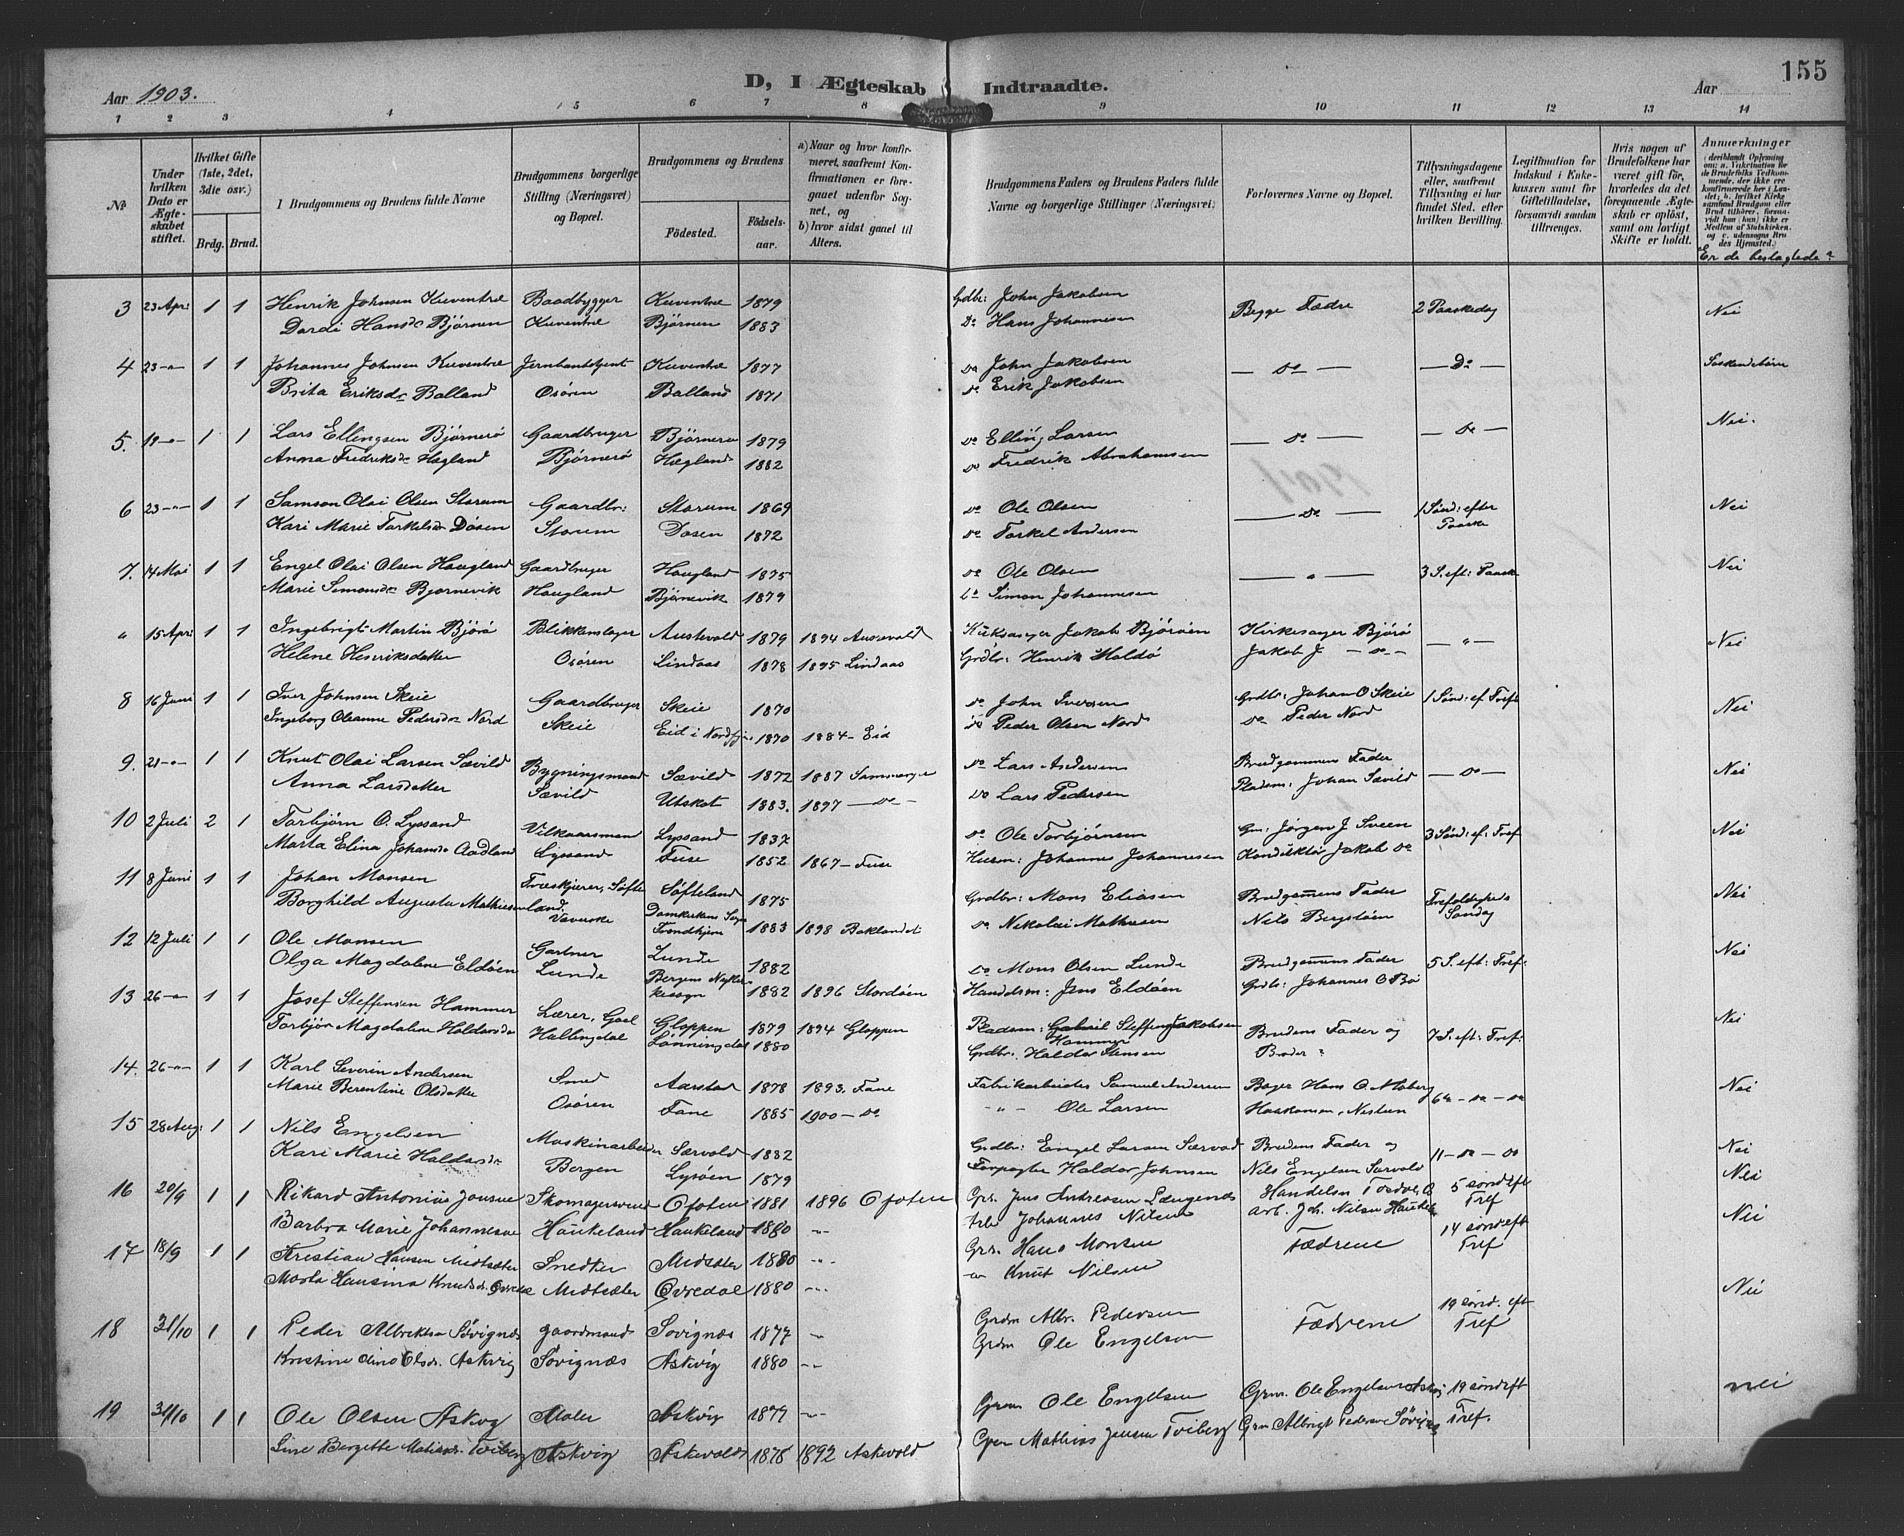 155
D, I Ægteskab Indtraadte.
Aar 1903. Aar
1 2 3 4 5 6 7 8 9 10 11 12 13 14
No
Under hvilken Dato er Ægteskabet stiftet.
Hvilket Gifte (1ste, 2det, 3die osv.)
Brdg. Brud.
I Brudgommens og Brudens fulde Navne
Brudgommens borgerlige Stilling (Næringsvei) og Bopæl.
Brudgommens og Brudens
Fødested. Fødselsaar.
a) Naar og hvor konfirmeret, saafremt Konfirmationen er foregaaet udenfor Sognet, og
b) hvor sidst gaaet til Alters.
Brudgommens Faders og Brudens Faders fulde Navne og borgerlige Stillinger (Næringsvei)
Forlovernes Navne og Bopæl.
Tillysningsdagene eller, saafremt Tillysning ei har fundet Sted, efter hvilken Bevilling.
Legitimation for Indskud i Enkekassen samt for Giftetilladelse, forsaavidt saadan tiltrænges.
Hvis nogen af Brudefolkene har været gift før, hvorledes da det foregaaende Ægteskab er opløst, samt om lovligt Skifte er holdt.
Anmærkninger
Er de beslægtede?
3 23 Apr: 1 1 Henrik Johnsen Kuventræ Baadbygger Kuventræ 1879 Gdbr: John Jakobsen Begge Fædre 2 Paaskedag Nei
Dorai Hansdr Bjørnen Kuventræ Bjørnen 1883 Do Hans Johannesen
4 23-"- 1 1 Johannes Johnsen Kuventræ Jernbanebetjent Kuventræ 1877 Do John Jakobsen — Do — — Do — Søskendebørn
Brita Eriksdr Balland Osøren Balland 1871 Do Erik Jakobsen
5. 19-"- 1 1 Lars Ellingsen Bjørnerø Gaardbruger Bjørnerø 1879 Do Elling Larsen — Do — — Do — Nei.
Anna Fredriksdr Hægland Bjørnerø Hægland 1882 Do Fredrik Abrahamsen
6 23-"- 1 1 Samson Olai Olsen Storum Gaardbr: Storum 1869 Do Ole Olsen — Do — 1 Sønd: efter Paaske Nei
Kari Marie Torkelsdr Døsen Storum Døsen 1872 Do Torkel Andersen
7. 14 Mai 1 1 Engel Olai Olsen Haugland Gaardbruger Haugland 1875 Do Ole Olsen — " — 3 S. eft: Paaske Nei
Marie Simonsdr Bjørnevik Haugland Bjørnevik 1879 Do Simon Johannesen
" 15 Apr: 1 1 Ingebrigt Martin Bjørø Blikkenslager Austevold 1879 1894 Austevold Kirkesanger Jakob Bjørøen Kirkesanger Bjørø — " — Nei
Helene Henriksdatter Osøren Lindaas 1878 1895 Lindaas Grdbr: Henrik Holdø Jakob J — Do —
8 16 Juni 1 1 Iver Johnsen Skeie Gaardbruger Skeie 1870 Do John Iversen Grdbr: Johan O. Skeie 1 Sønd: ef Tref: Nei
Ingeborg Oleanne Pedersdr Nord Skeie Eid i Nordfj: 1870 1884 - Eid Do Peder Olsen Nord Do Peder Nord
9. 21-"- 1 1 Knut Olai Larsen Sævild Bygningsmand Sævild 1872 1887 Samnanger Do Lars Andersen Brudgommens Fader — Do — Nei
Anna Larsdatter Sævild Utskot 1883. 1897 — Do — Do Lars Pedersen Pladsm: Johan Sævild
10 2 Juli 2 1 Torbjørn O. Lyssand Vilkaarsman Lyssand 1837 Do Ole Torbjørnsen Gm: Jørgen J. Sveen 3 Sønd: ef: Tref Nei
Marta Elina Johansdr Aadland Lyssand Fuse 1852 1867 - Fuse Husm: Johannes Johannesen Konduktør Jakob Do
11 8 Juni 1 1 Johan Monsen Træskjærer, Søfteland. Søfteland 1875 Grdbr: Mons Eliasen Brudgommens Fader Trefoldigheds Søndag Nei
Borghild Augusta Mathiesen Væverske Domkirkens Sogn Trondhjem 1883 1898 Baklandet Do Nikolai Mathiesen Nils Bergstøen
12 12 Juli 1 1 Ole Monsen Gartner Lunde 1882 Do Mons Olsen Lunde Brudgommens Fader 5 S. eft: Tref: Nei
Olga Magdalene Eldøen Lunde Bergens Nykirkesogn 1882 1896 Stordøen Handelsm: Jens Eldøen Grdbr: Johannes O Bø
13 26-"- 1 1 Josef Steffensen Hammer Lærer, Gool Gloppen 1879 1894 Gloppen Pladsm: Gabriel Steffen Jakobsen Hammer Brudens Fader og 7 S. eft: Tref: Nei
Torbjør Magdalene Haldorsdr Hallingdal Lønningdal 1880 Grdbr: Haldor Stensen Broder
14. 26-"- 1 1 Karl Severin Andersen Smed Aarstad 1878 1893. Fane Fabrikarbeider Samuel Andersen Bager Hans O. Moberg 6te - Do - Do Nei
Marie Berentine Olsdatter Osøren Fane 1885 1900 - Do -"- Ole Larsen Haakonsen, Nestun
15 28 Aug: 1 1 Nils Engelsen Maskinarbeider Særvold 1882 Grdbr: Engel Larsen Særvold Brudens Fader og 11 - Do - Do Nei
Kari Marie Haldorsdr Bergen Lysøen 1879 Forpagter Haldor Johnsen Nils Engelsen Særvold
16 20/9 1 1 Rikard Antonius Jensen Skomagersvend Ofoten 1881 1896 Ofoten Grdr. Jens Andreassen Længenæs Handelsm 5 sønd eft Tref Nei
Barbra Marie Johannesen Haukeland Haukeland 1880 -"- Arb. Johannes Nilsen Arb. Joh. Nilsen Haukel.
17 18/9 1 1 Kristian Hansen Midtsæter Snedker Midtsæter 1880 -"- Grdr. Hans Monsen Fædrene 14 sønd eft Tref Nei
Marta Hansina Knudsdr. Øvredal Midtsæter Øvredal 1880 -"- Knut Nilsen
18 31/10 1 1 Peder Albriktsen Søvignæs Gaardmand Søvignæs 1877 -"- Grdm Albr. Pedersen Fædrene 19 sønd. eft Tref Nei
Kristine Olsdr. Askvig Søvignæs Askvig 1880 -"- Grdm Ole Engelsen
19 31/10 1 1 Ole Olsen Askvig Maler Askvig 1877 -"- Grdm Ole Engelsen Grm. Ole Engelsen Askvig 19 sønd eft Tref. nei
Line Bergitte Matiasdr. Tviberg Askvig Askevold 1878 1892 Askevold Grm Mathias Jensen Tviberg Grm Albrigt Pedersen Søvignæs